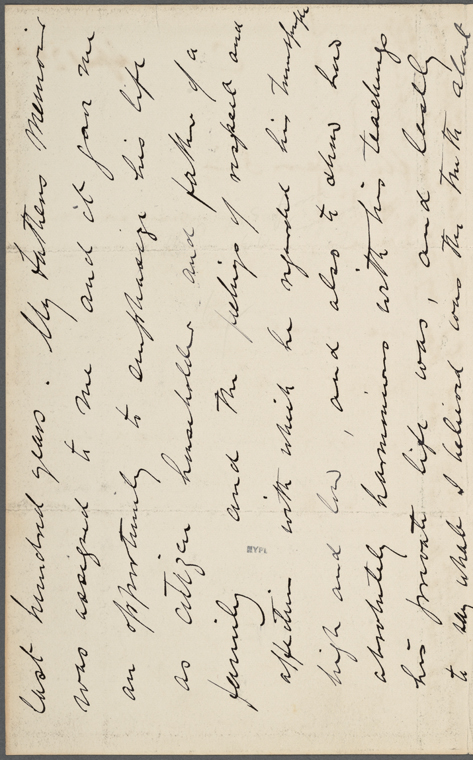 last hundred years. My Fathers Memoir
was assigned to me and it gave me
an opportunity to emphasize his life
as citizen householder and father of a
family and the feelings of respect and
affection with which he regarded his
high and low, and also to show how
absolutely harmonious with his teachings
his private life was, and lastly
to say what I believed was the truth about
NYPL